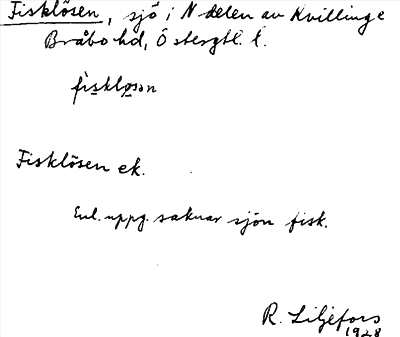 Fisklösen, sjö i N delen av Kvillinge
Bråbo hd, Östergtl. l.
fiskløsən
Fisklösen ek.
Enl. uppg. saknar sjön fisk.
R. Liljefors
1928